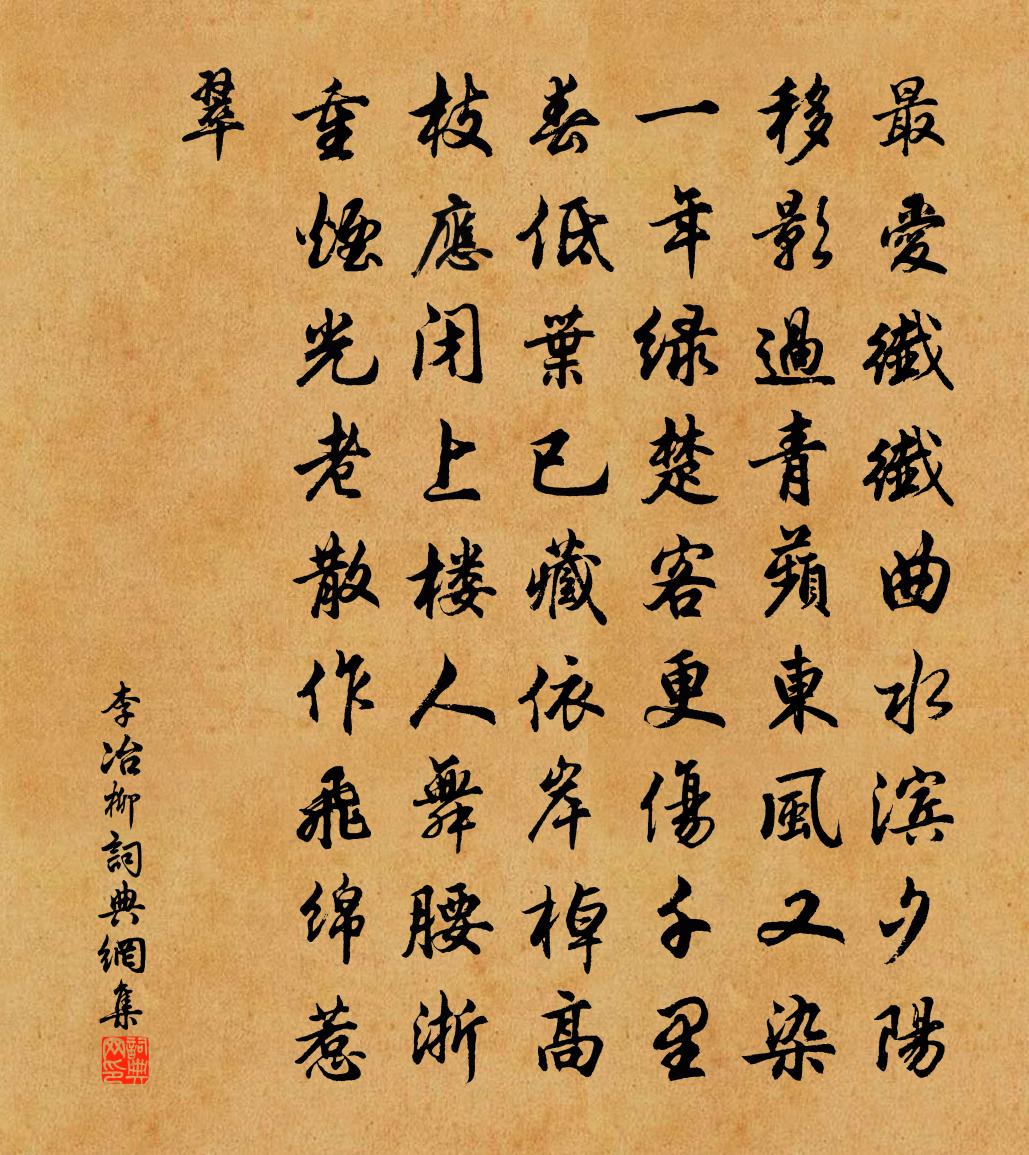 最愛纖纖曲水滨夕陽
移影過青蘋東風又染
一年绿楚客更傷千里
春低葉已藏依岸棹高
枝應闭上楼人舞腰浙
重煙光老散作飛绵惹
翠
李冶柳詞典網集
詞典网印